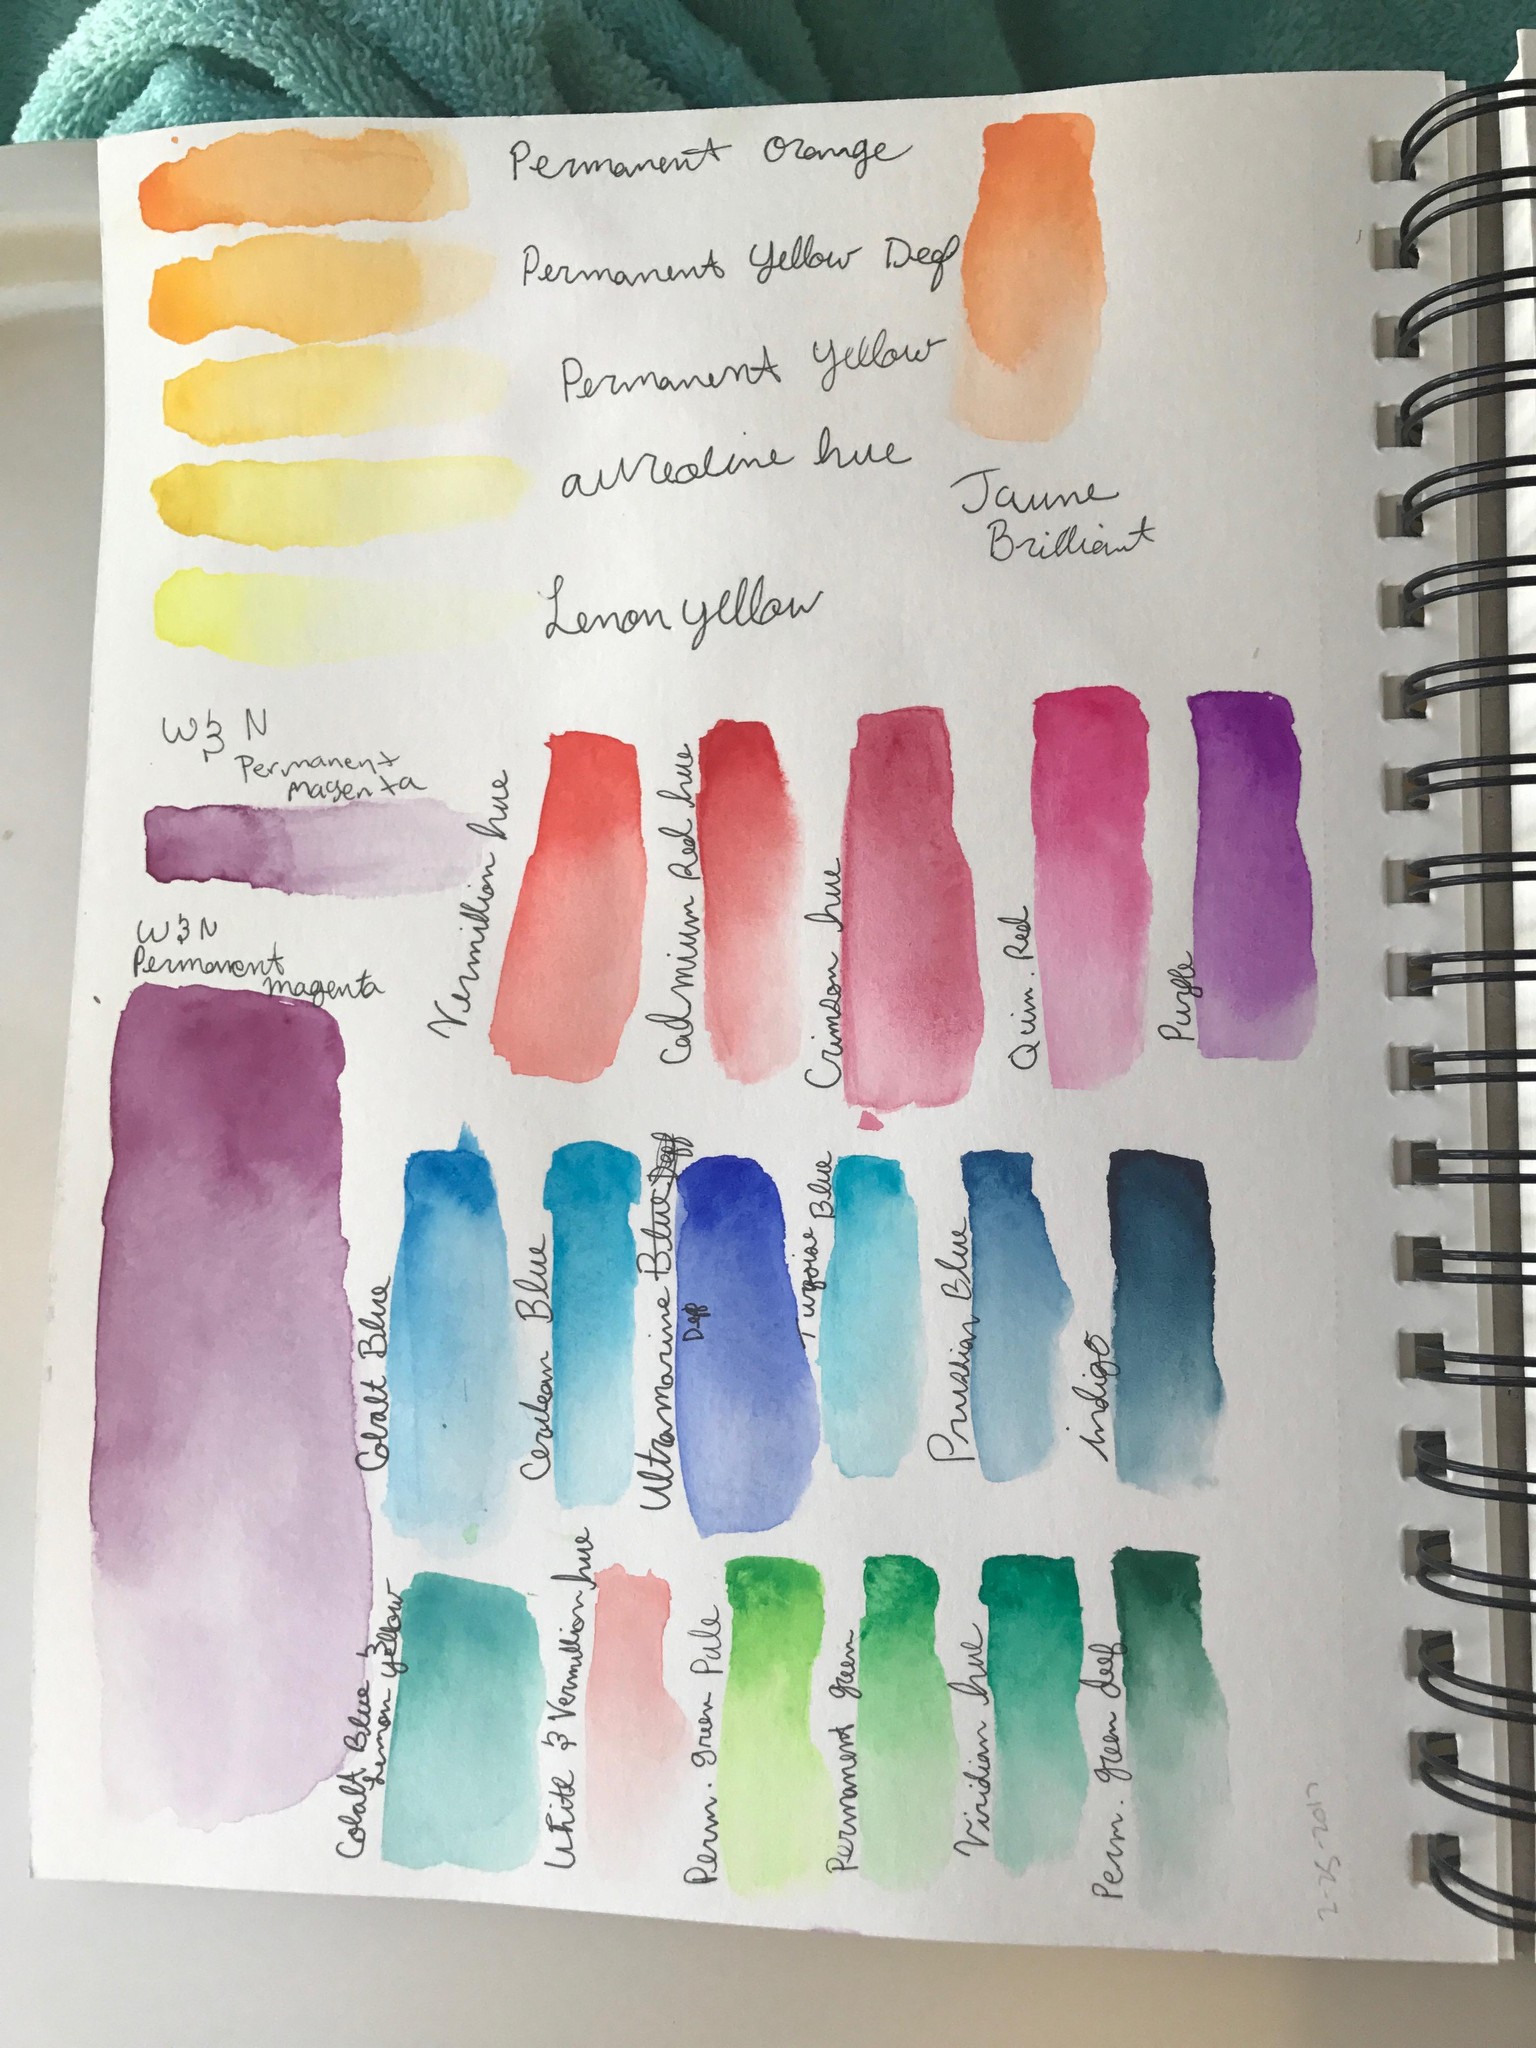 Permanent Orange
Permanent Yellow Deep
Permanent Yellow
aureoline hue
Jaune
Brilliant
Lemon yellow
W & N
Permanent
Magenta
W & N
Permanent
Magenta
Vermillion hue
Cadmium Red hue
Crimson hue
Quin. Red
Purple
Cobalt Blue
Cerulean Blue
Ultramarine Blue Deep
Deep
Turqoise Blue
Prussian Blue
indigo
Cobalt Blue &
Lemon yellow
White & Vermillion hue
Perm. green Pale
Permanent green
Viridian hue
Perm. green deep
2-25-2017